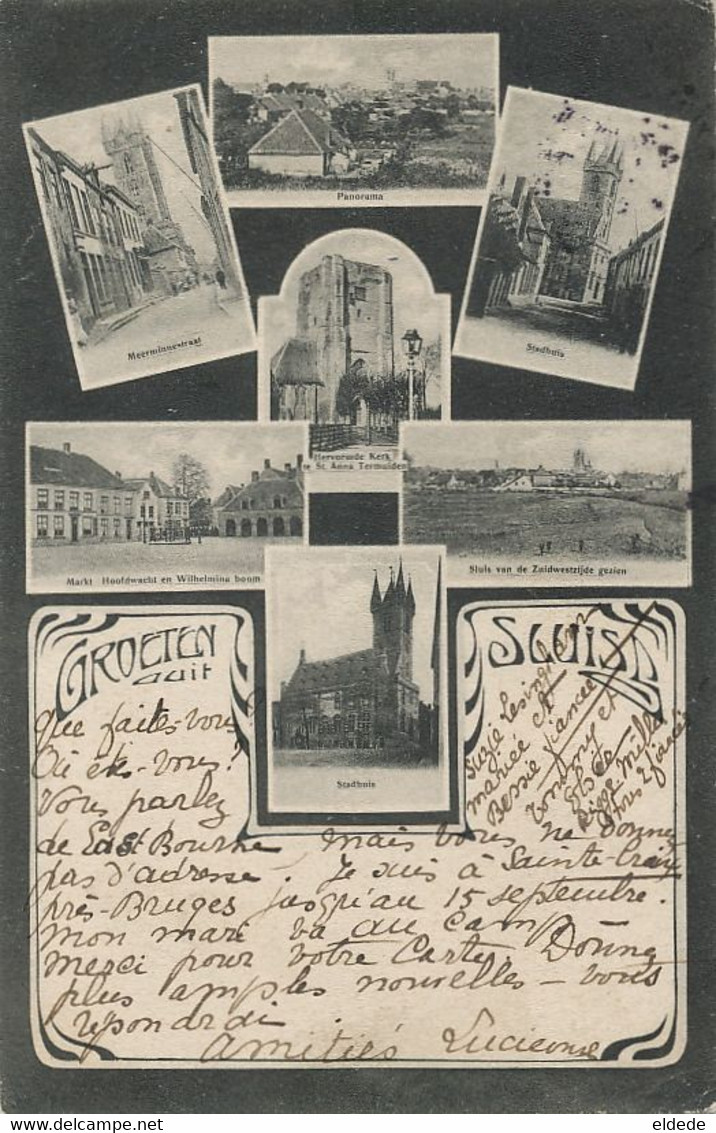 Panorama
Meerminnestraat
Stadhuis
Hervormde Kerk
te St. Anna Termuiden
Markt Hoofdwacht en Wilhelmina boom
Sluis van de Zuidwestzijde gezien
Stadhuis
GROETEN
uit
SLUIS
Que faites-vous?
Où êtes-vous?
Vous parlez
de East Bourne mais vous ne donnez
pas d'adresse. Je suis à Sainte-Croix
près-Bruges jusqu'au 15 septembre.
Mon mari va au camp
Merci pour votre Carte. Donnez
plus amples nouvelles - vous
répondrai
Amitiés Lucienne
Suzie Lesingham
mariée et
Bessie fiancée
Tommy et
Els de
tous 2 fiancés
Markt.be - Delcampe.net
eldede